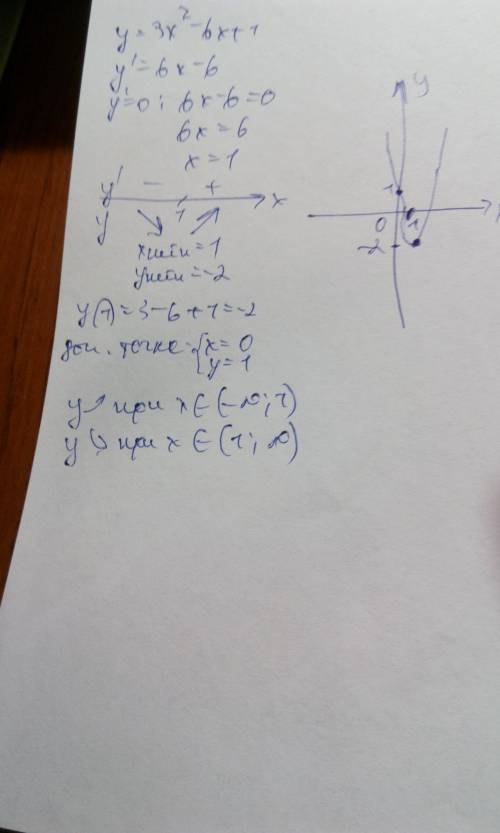 y = 3x² - 6x + 1
y' = 6x - 6
y' = 0; 6x - 6 = 0
6x = 6
x = 1
y' - + x
y 1
xmin = 1
ymin = -2
y(1) = 3 - 6 + 1 = -2
доп. точка: { x = 0
y = 1
y ↗ при x ∈ (-∞; 1)
y ↘ при x ∈ (1; ∞)
y
1
0 1
-2